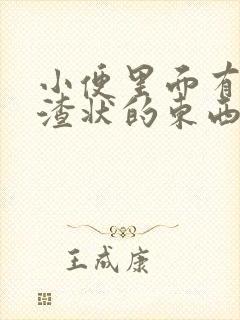 小便里面有
渣状的东西
王成康